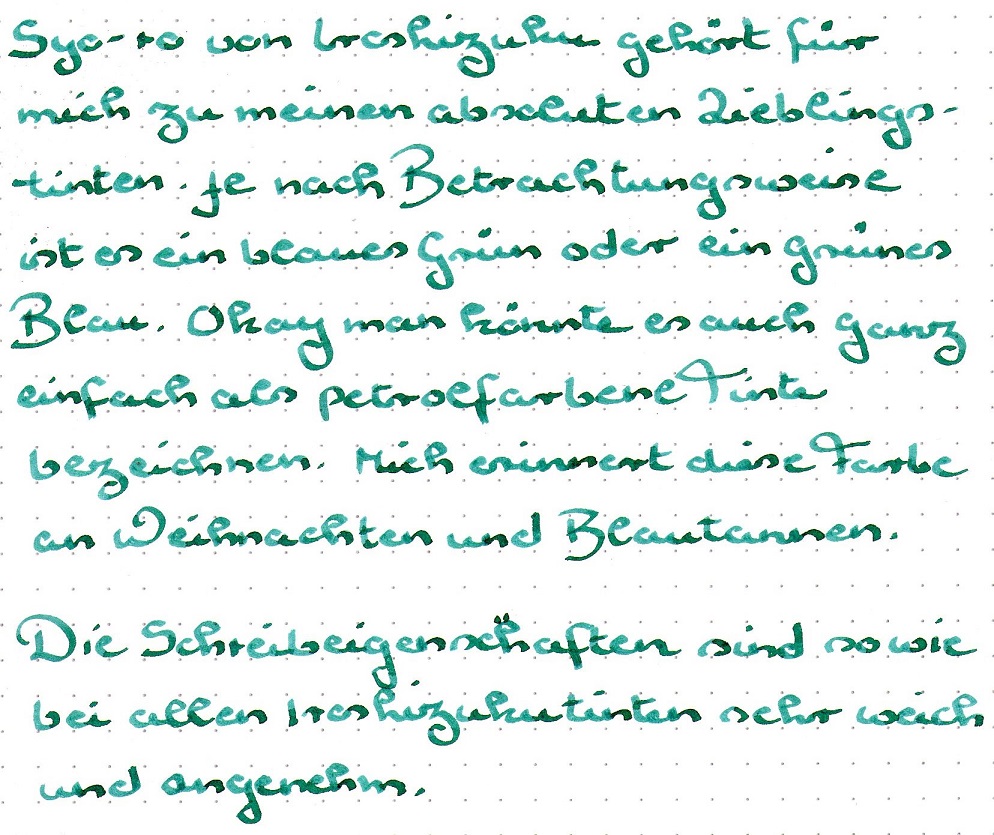 Syo-ro von Iroshizuku gehört für
mich zu meinen absoluten Lieblings-
tinten. Je nach Betrachtungsweise
ist es ein blaues Grün oder ein grünes
Blau. Okay man könnte es auch ganz
einfach als petrolfarbene Tinte
bezeichnen. Mich erinnert diese Farbe
an Weihnachten und Blautannen.
Die Schreibeigenschäften sind so wie
bei allen Iroshizukutinten sehr weich
und angenehm.